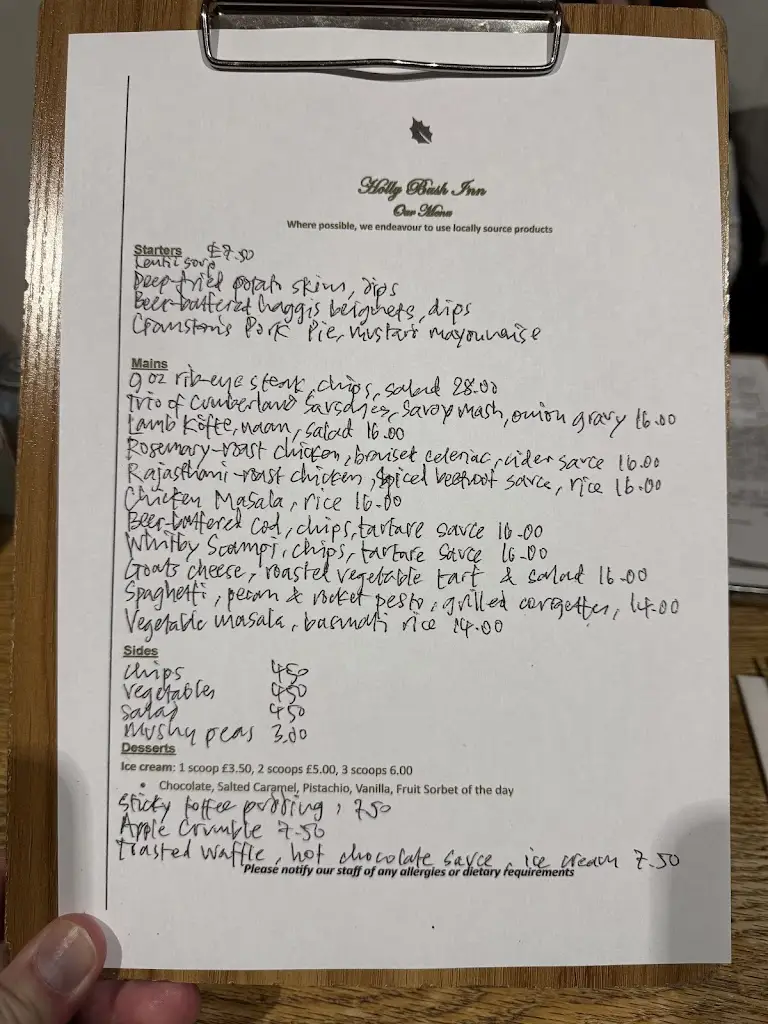 Holly Bush Inn
Our Menu
Where possible, we endeavour to use locally source products
Starters £7.50
Lentil soup
Deep-fried potato skins, dips
Beer-battered haggis beignets, dips
Cranston's Pork Pie, mustard mayonnaise
Mains
9 oz rib-eye steak, chips, salad 28.00
Trio of Cumberland Sausages, Savoy mash, onion gravy 16.00
LambKöfte, naan, salad 16.00
Rosemary-roast chicken, braised celeriac, cider sauce 16.00
Rajasthani-roast chicken, spiced beetroot sauce, rice 16.00
Chicken Masala, rice 16.00
Beer-battered Cod, chips, tartare sauce 16.00
Whitby Scampi, chips, tartare sauce 16.00
Goats cheese, roasted vegetable tart & salad 16.00
Spaghetti, pecan & rocket pesto, grilled corgettes, 14.00
Vegetable masala, basmati rice 14.00
Sides
Chips 450
Vegetables 450
Salad 450
Mushy peas 3.00
Desserts
Ice cream: 1 scoop £3.50, 2 scoops £5.00, 3 scoops 6.00
• Chocolate, Salted Caramel, Pistachio, Vanilla, Fruit Sorbet of the day
Sticky toffee pudding, 750
Apple Crumble 7.50
Toasted Waffle, hot chocolate sauce, ice cream 7.50
Please notify our staff of any allergies or dietary requirements